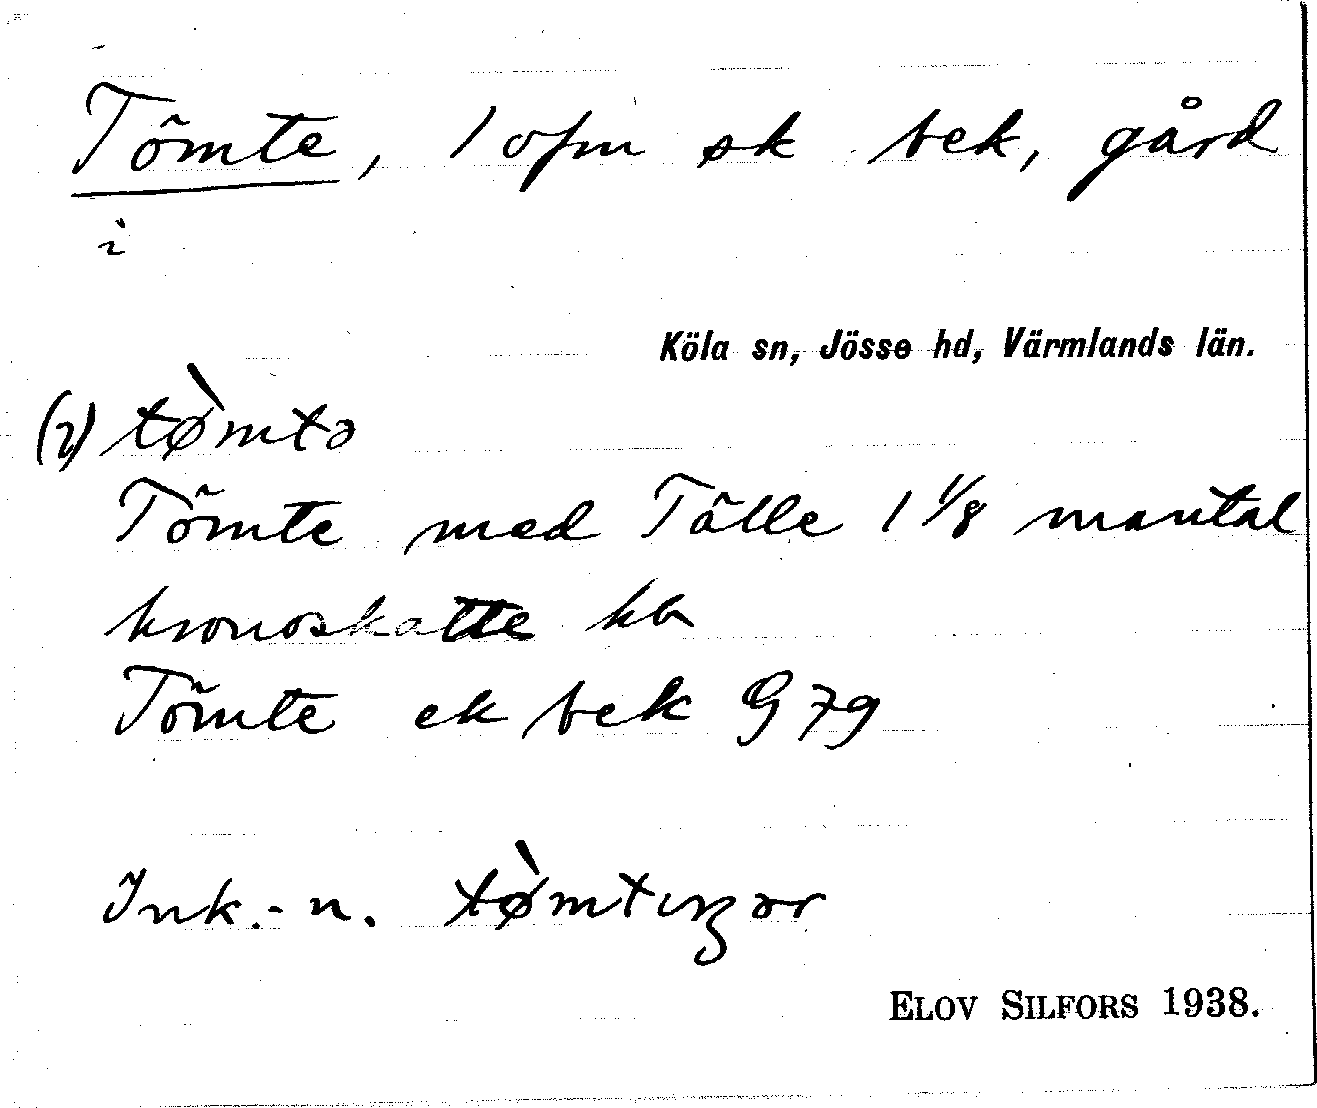 Tömte, 1 ofm sk bek, gård
i
Köla sn, Jösse hd, Värmlands län.
(i) tø̀mtə
Tömte med Tälle 1 1/8 mantal
kronoskatte kb
Tömte ek bek G 79
Ink.-n. tø̀mtıŋər
ELOV SILFORS 1938.